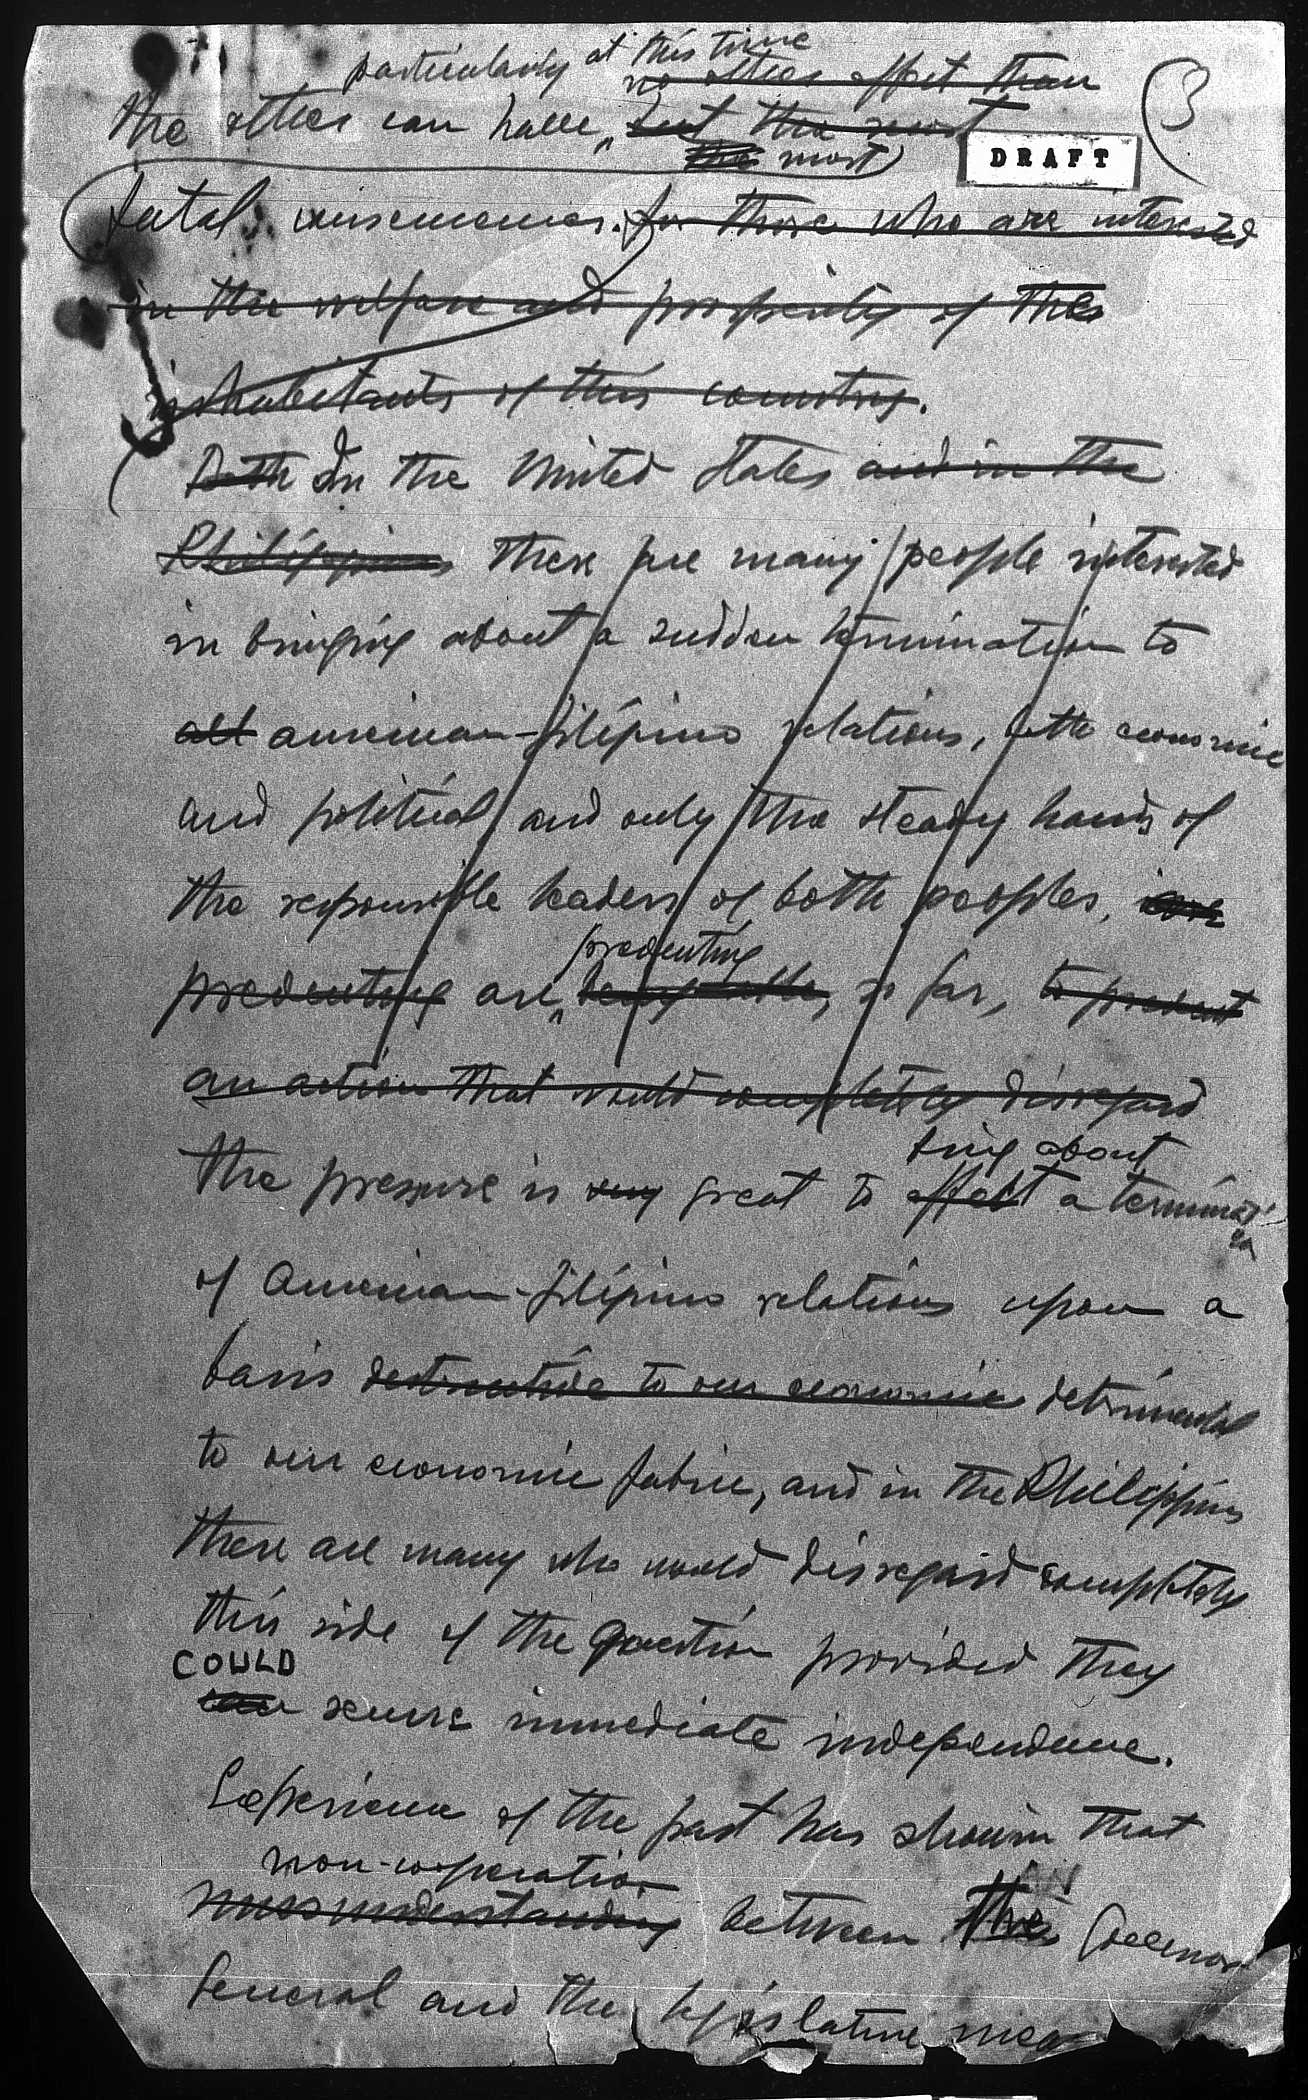 particularly at this time
no other effect than
3
the other can have, but the most
the most
DRAFT
fatal consequences. for those who are interested
in the welfare and prosperity of the
inhabitants of this country.
Both In the United States and in the
Philippines there are many people interested
in bringing about a sudden termination to
all American-Filipino relations, both economic
and political and only the steady hands of
the responsible leaders of both peoples,
preventing
preventing are so far, to prevent
an action that would completely disregard
bring about
The pressure is very great to effect a termination
of American-Filipino relations upon a
basis destructive to our economic detrimental
to our economic fabric, and in the Philippines
there are many who would disregard completely
this side of the question provided they
COULD
can secure immediate independence.
Experience of the past has shown that
non-cooperation
AN
misunderstanding between the Governor
General and the legislative